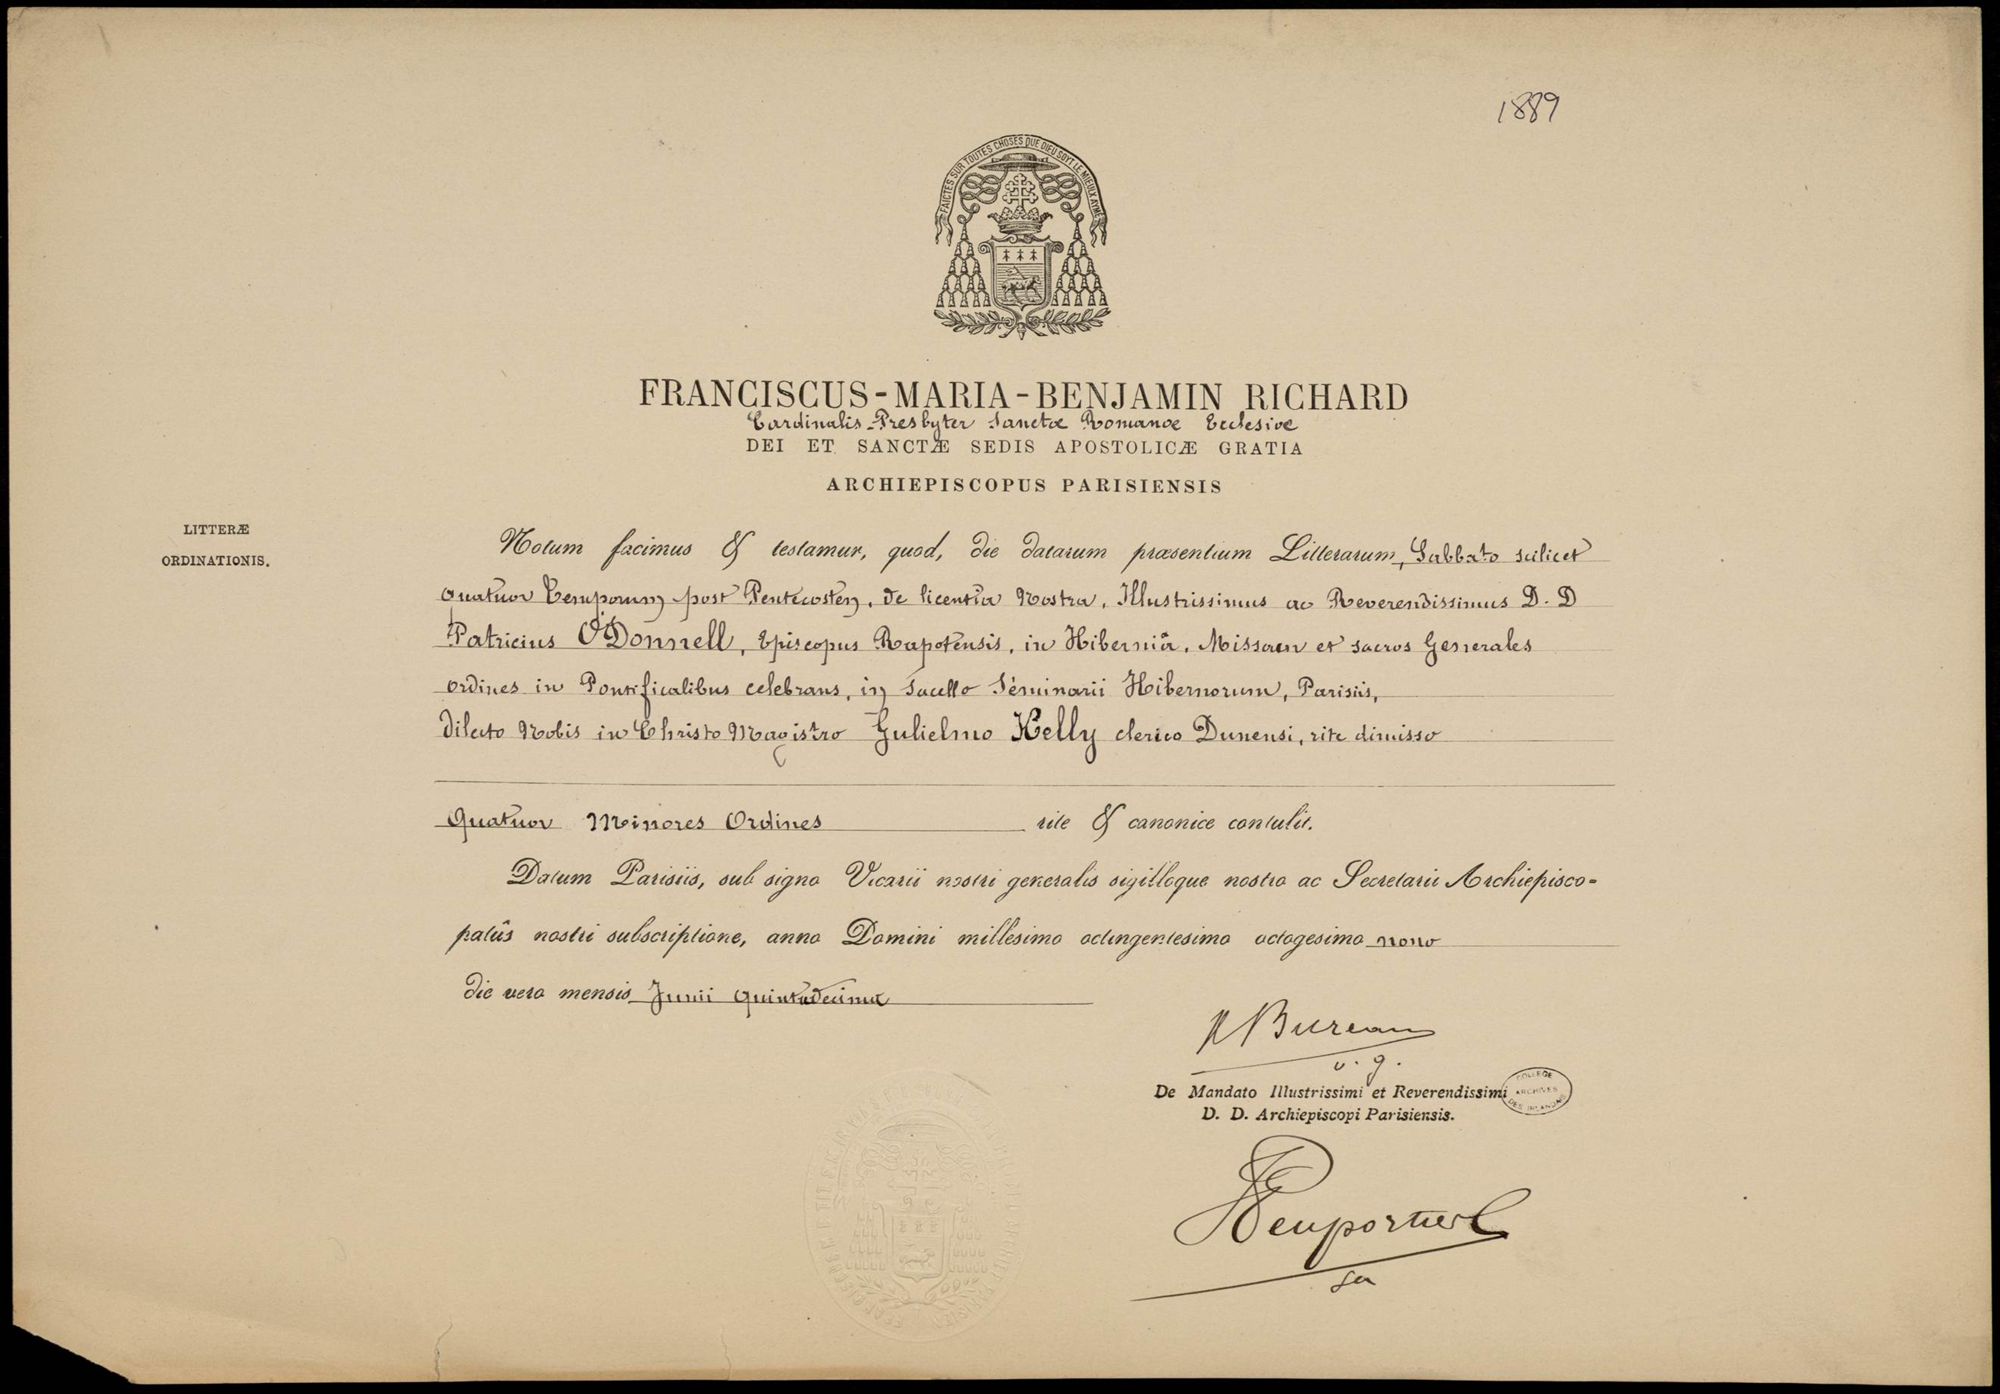 1889
FAICTES SUR TOUTES CHOSES QUE DIEU SOYT LE MIEULX AYMÉ
FRANCISCUS-MARIA-BENJAMIN RICHARD
Cardinalis-Presbyter Sanctæ Romanæ Ecclesiæ
DEI ET SANCTÆ SEDIS APOSTOLICÆ GRATIA
ARCHIEPISCOPUS PARISIENSIS
LITTERÆ
ORDINATIONIS.
Notum facimus & testamur, quod, die datarum præsentium Litterarum, Sabbato scilicet
quatuor Temporum post Pentecosten, de licentia Nostra, Illustrissimus ac Reverendissimus D. D
Patricius O'Donnell, Episcopus Rapotensis, in Hiberniâ, Missam et sacros Generales
ordines in Pontificalibus celebrans, in Sacello Séminarii Hibernorum, Parisiis,
dilecto Nobis in Christo Magistro Gulielmo Kelly clerico Dunensi, rite dimisso
Quatuor Minores Ordines rite & canonice contulit.
Datum Parisiis, sub signo Vicarii nostri generalis sigilloque nostro ac Secretarii Archiepisco-
patûs nostri subscriptione, anno Domini millesimo octingentesimo octogesimo nono
die vero mensis Junii quintadecima
Bureau
v. g.
De Mandato Illustrissimi et Reverendissimi
D. D. Archiepiscopi Parisiensis.
COLLEGE
ARCHIVES
DES IRLANDAIS